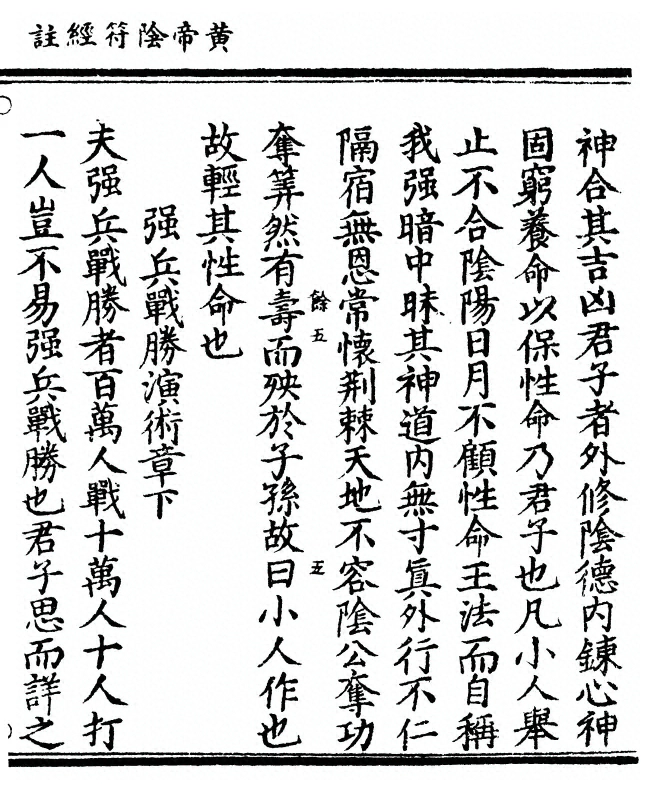 黄帝陰符經註
神合其吉凶君子者外修陰德内鍊心神
固窮養命以保性命乃君子也凡小人舉
止不合陰陽日月不顧性命王法而自稱
我强暗中昧其神道内無寸眞外行不仁
隔宿無恩常懷荆棘天地不容陰公奪功
奪筭然有壽而殃於子孫故曰小人作也
餘五
五
故輕其性命也
强兵戰勝演術章下
夫强兵戰勝者百萬人戰十萬人十人打
一人豈不易强兵戰勝也君子思而詳之